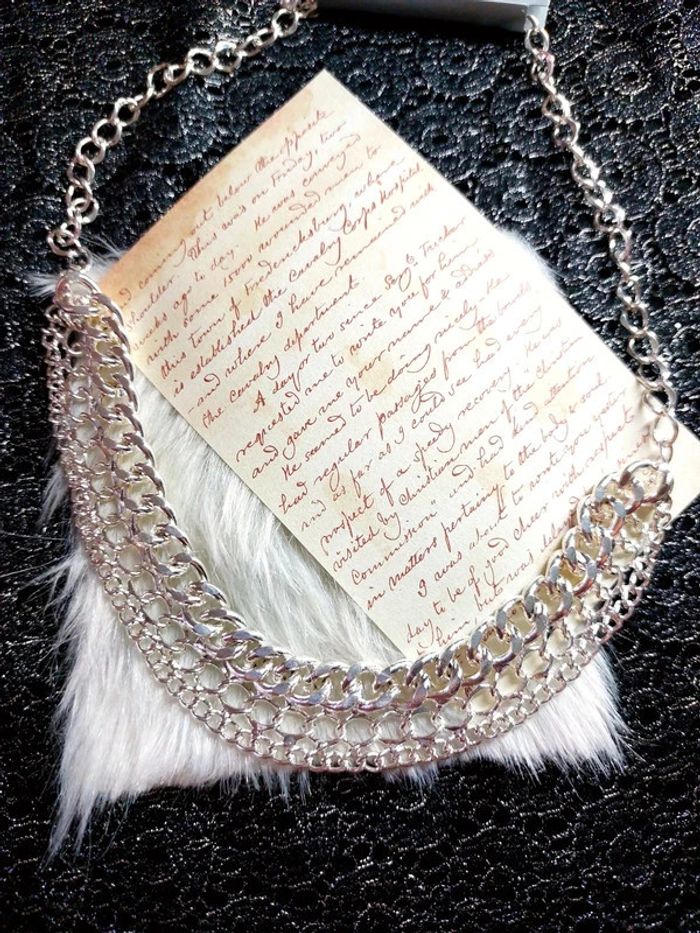 coming out below the opposite
shoulder. This was on Friday, two
weeks ago to day. He was conveyed
with some 15000 wounded men to
this town of Fredericksburg, where
is established the Cavalry Corps Hospital
- and where I have remained with
the cavalry department.
A day or two since Sergt.
requested me to write you for him
and gave me your name & address
He seemed to be doing nicely - He
had regular passages from the bowels
and as far as I could see had every
prospect of a speedy recovery. He was
visited by Christian men of the "Christian
Commission" and had kind attention
in matters pertaining to the body and soul.
I was about to write you yester
day to be of good cheer with respect to
him but was